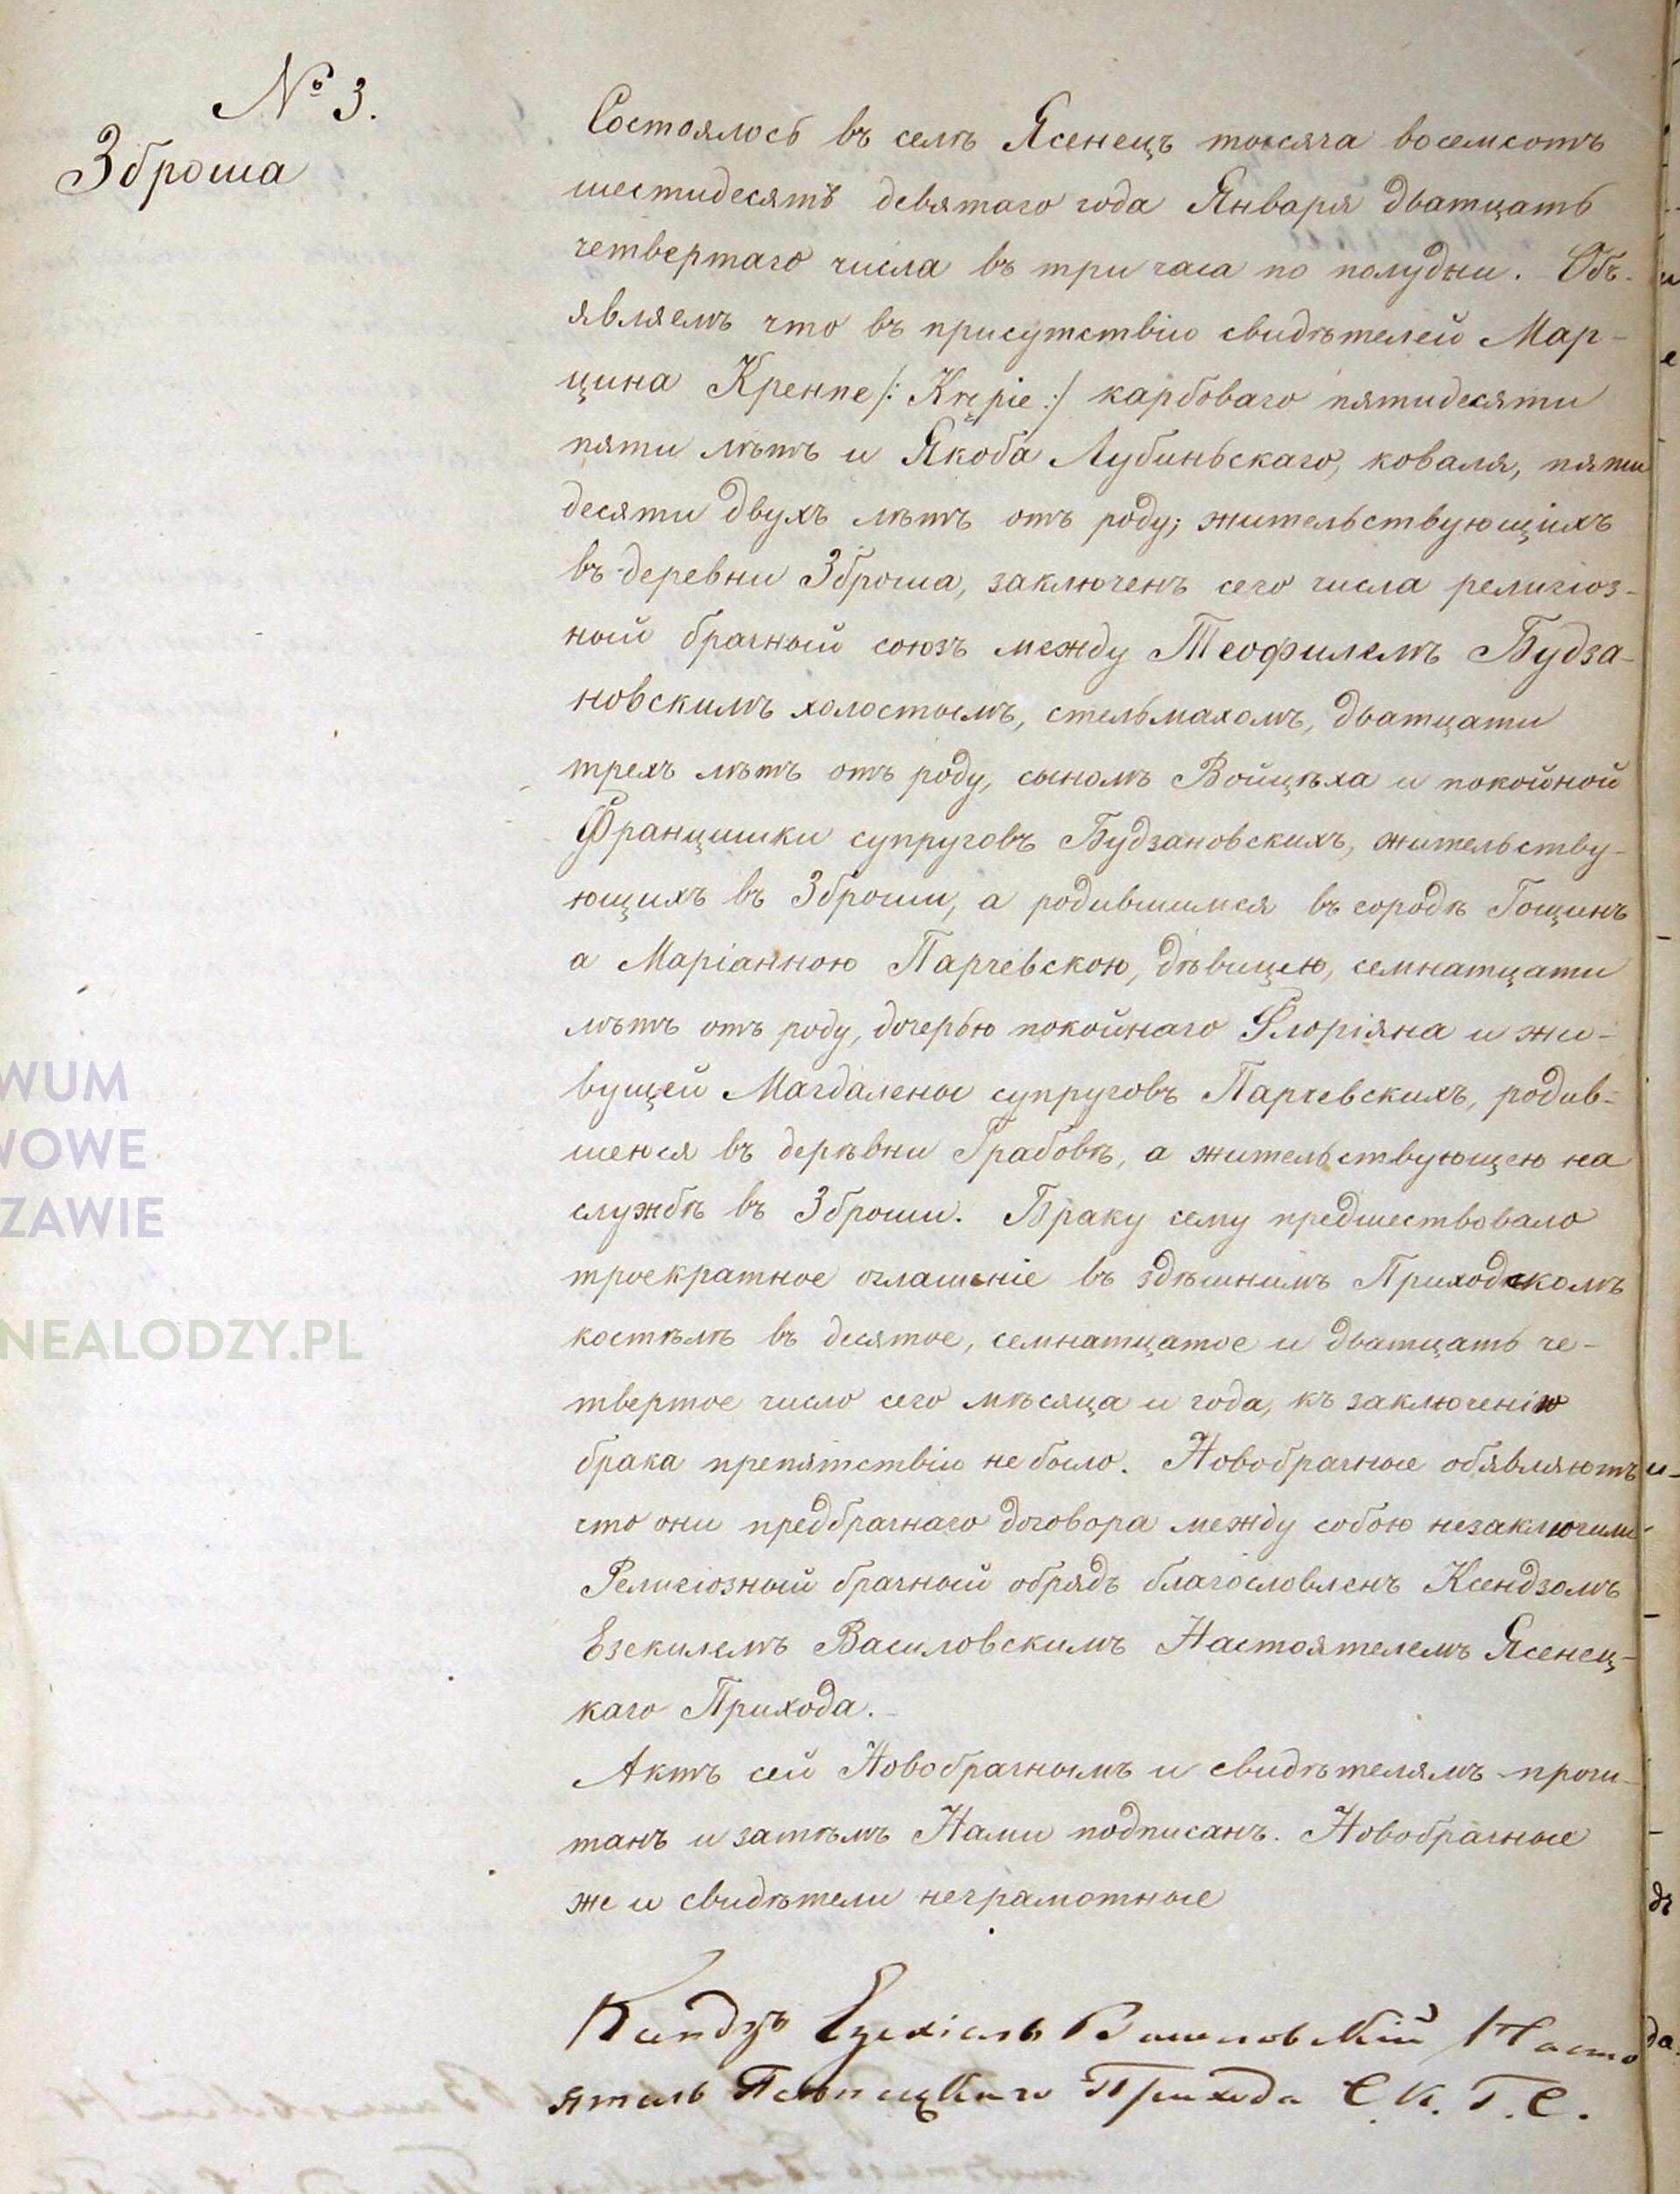 № 3.
Зброша
Состоялось въ селѣ Ясенецъ тысяча восемсотъ
шестидесятъ девятаго года Января дватцать
четвертаго числа въ три часа по полудни. Объ-
являемъ что въ присутствіи свидѣтелей Мар-
цина Кренпе /: Krępie :/ карбоваго пятидесяти
пяти лѣтъ и Якоба Лубиньскаго, коваля, пяти
десяти двухъ лѣтъ отъ роду; жительствующихъ
въ деревни Зброша, заключенъ сего числа религіоз-
ный брачный союзъ между Теофилемъ Будза-
новскимъ холостымъ, стельмахомъ, дватцати
трехъ лѣтъ отъ роду, сыномъ Войцѣха и покойной
Францишки супруговъ Будзановскихъ, жительству-
ющихъ въ Зброши, а родившимся въ городѣ Гощинъ
а Маріанною Парчевскою, дѣвицею, семнатцати
лѣтъ отъ роду, дочерью покойнаго Флоріяна и жи-
вущей Магдалены супруговъ Парчевскихъ, родив-
шеюся въ дерѣвни Грабовѣ, а жительствующею на
службѣ въ Зброши. Браку сему предшествовало
троекратное оглашеніе въ здѣшнимъ Приходскомъ
костѣлѣ въ десятое, семнатцатое и дватцать че-
твертое число сего мѣсяца и года, къ заключенію
брака препятствіи не было. Новобрачные обявляютъ
сто они предбрачнаго договора между собою незаключили
Религіозный брачный обрядъ благословленъ Ксендзомъ
Езекилемъ Василовскимъ Настоятелемъ Ясенец-
каго Прихода.
Актъ сей Новобрачнымъ и свидѣтелямъ прочи-
танъ и затѣмъ Нами подписанъ. Новобрачные
же и свидѣтели неграмотные
Ксендзъ Езехіель Василовскій Насто
ятель Ясенецкаго Прихода С. К. Г. С.
WUM
WOWE
ZAWIE
NEALODZY.PL